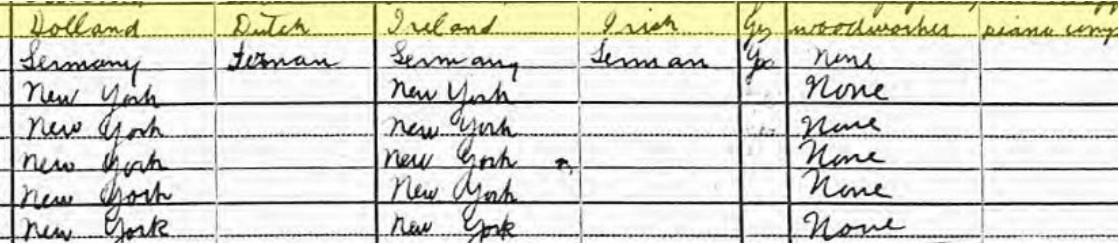 Holland Dutch Ireland Irish Yes woodworker piano comp
Germany German Germany German Yes None
New York New York None
New York New York None
New York New York None
New York New York None
New York New York None